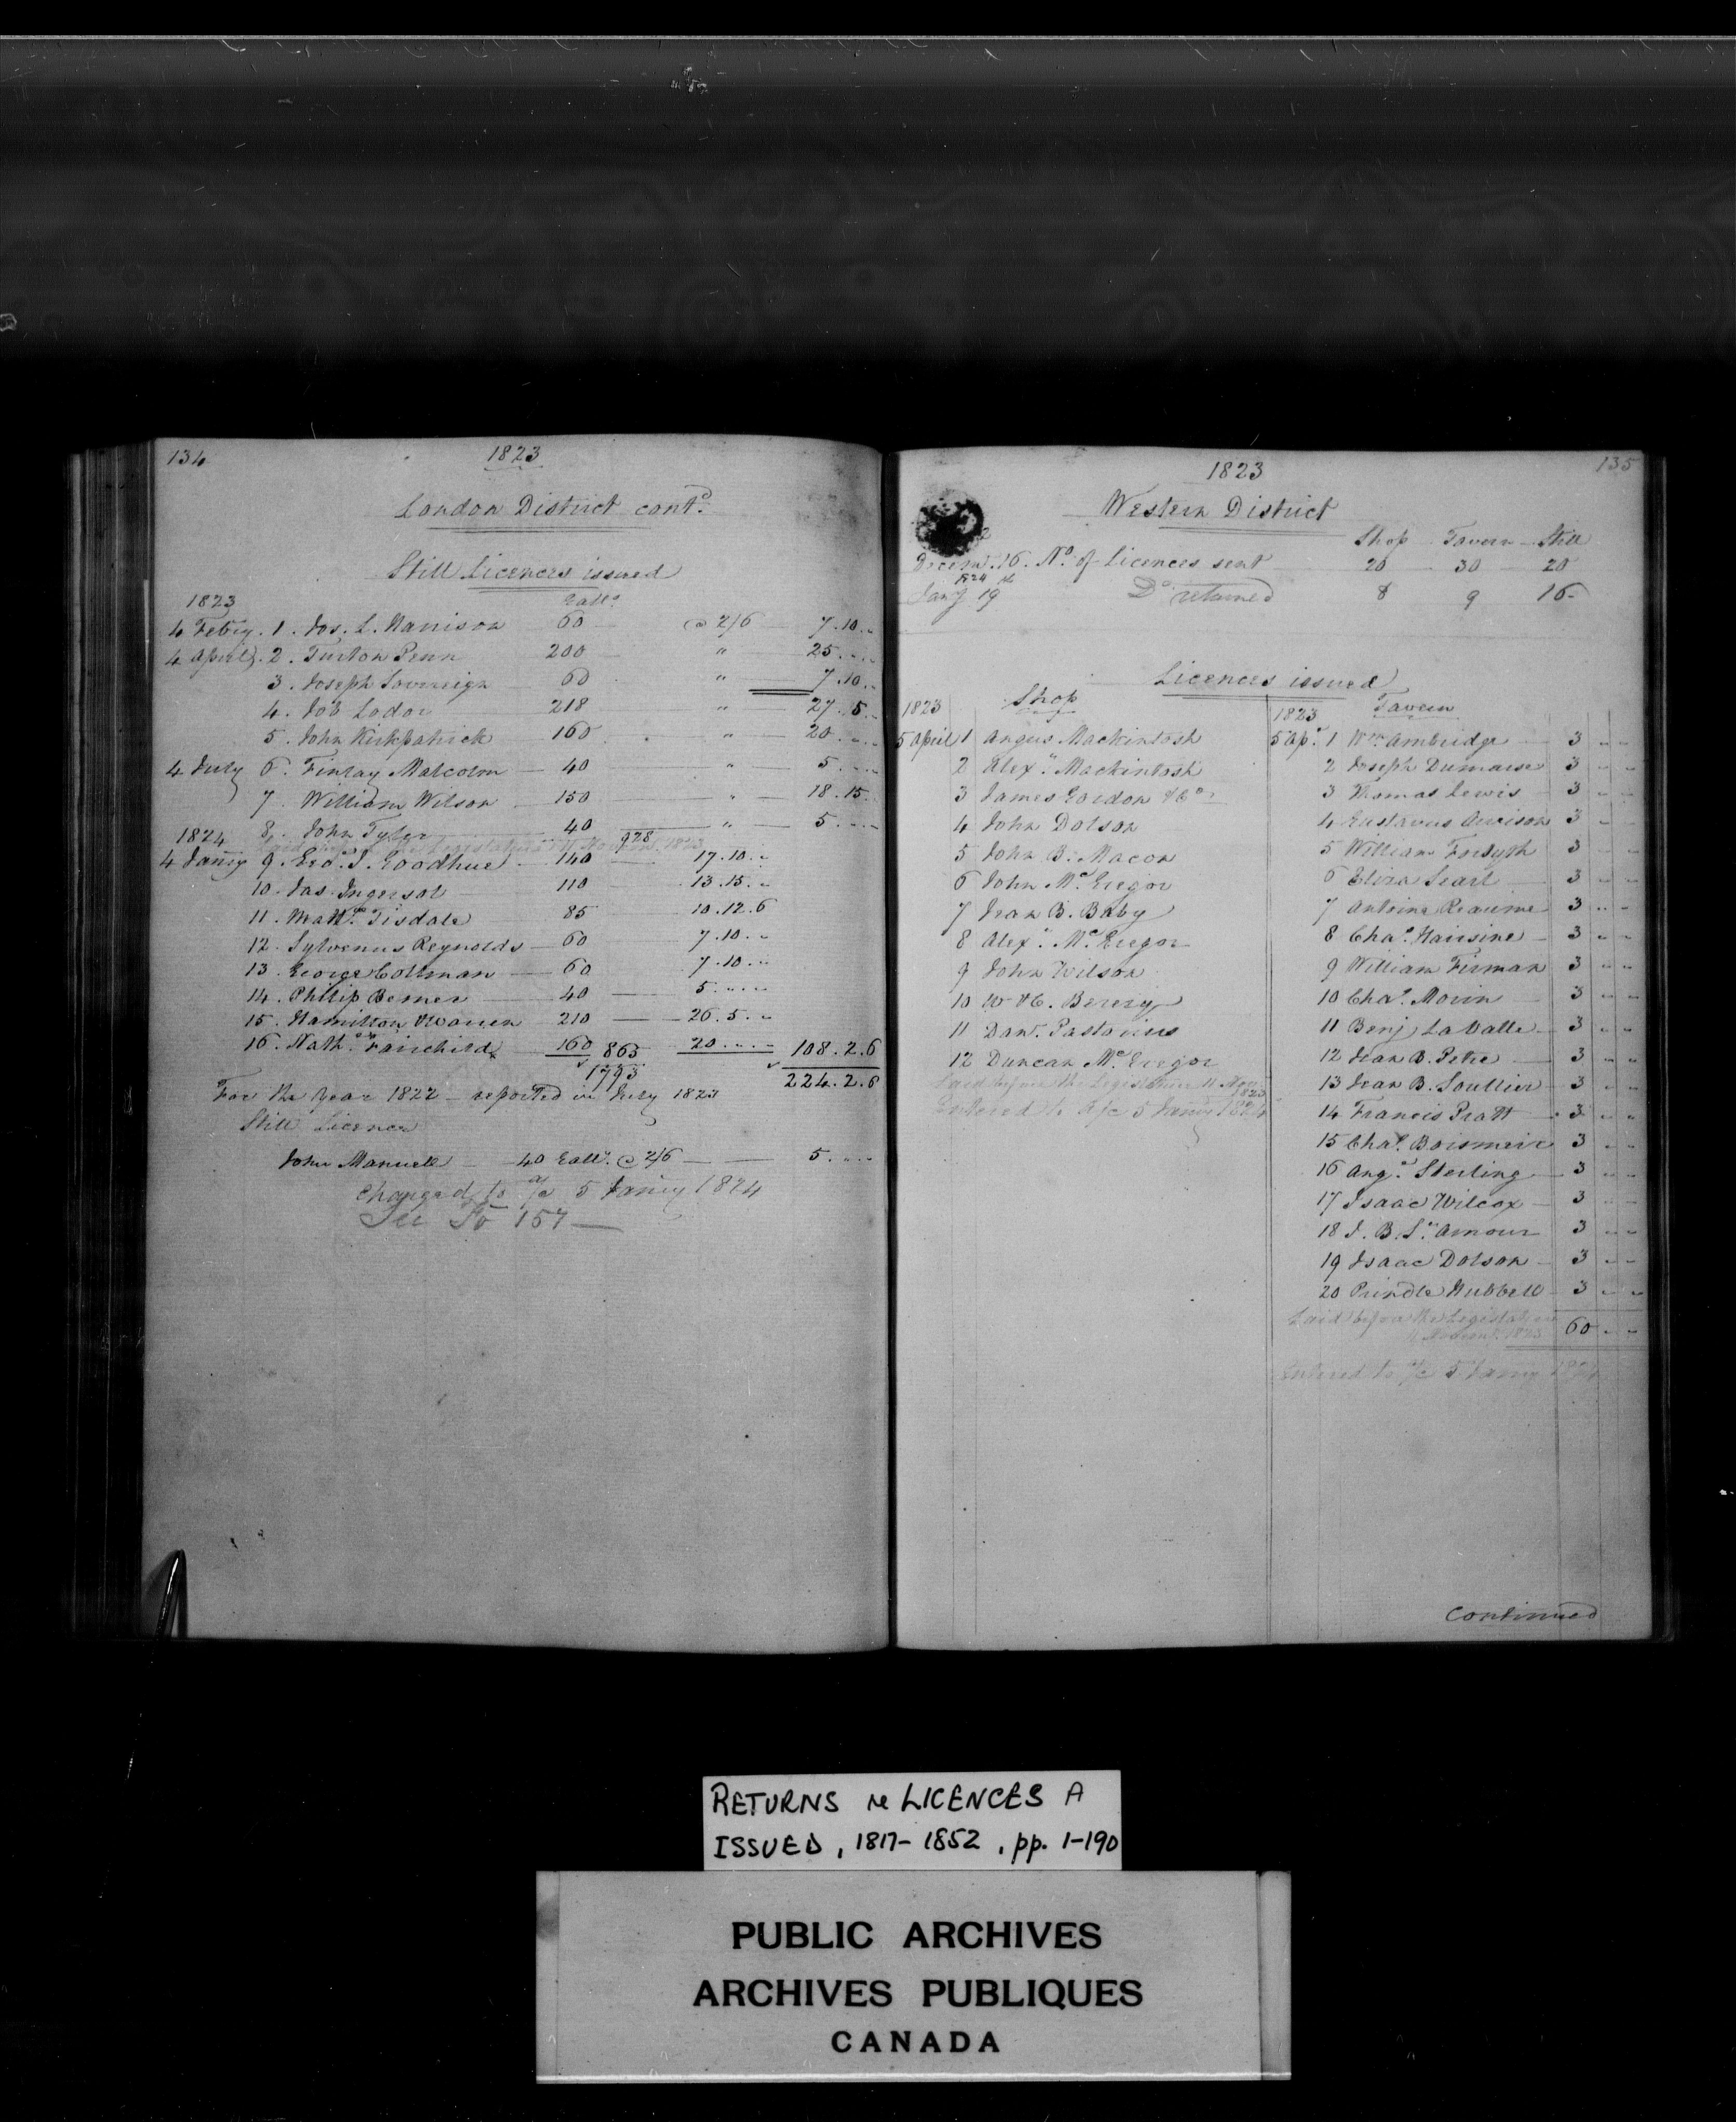 134
1823
London District contd.
Still Licences issued
1823 Galls
4 Feby. 1. Jos. L. Harrison 60 @ 2/6 7.10..
4 April. 2. Turton Penn 200 " 25....
3. Joseph Sovereign 60 " 7.10..
4. Job Lodor 218 " 27.5..
5. John Kirkpatrick 160 " 20....
4 July 6. Finlay Malcolm 40 " 5....
7. William Wilson 150 " 18.15.
8. John Tyler 40 " 5....
928
1824
4 Jany 9. Geo. J. Goodhue 140 17.10..
10. Jas. Ingersol 110 13.15..
11. Matt. Tisdale 85 10.12.6
12. Sylvenus Reynolds 60 7.10..
13. George Coltman 60 7.10..
14. Philip Bemer 40 5....
15. Hamilton Warren 210 26.5..
16. Nath. Fairchild 160 863 20.... 108.2.6
1793 224.2.6
For the year 1822 reported in July 1823
Still Licence
John Manuell 40 Galls. @ 2/6 5....
Charged to a/c 5 Jany 1824
See Fo 157
135
1823
Western District
Shop Tavern Still
Decem. 16. No. of Licences sent 20 30 20
1824
Jany 19 Do. returned 8 9 16
Licences issued
1823 Shop
5 April 1 Angus Mackintosh
2 Alexr. Mackintosh
3 James Gordon & Co.
4 John Dolson
5 John B. Macon
6 John Mc.Gregor
7 Jean B. Baby
8 Alexr. Mc.Gregor
9 John Wilson
10 W & C. Berczy
11 Danl. Pastorius
12 Duncan Mc.Gregor
Laid before the Legislature 11 Nov. 1823
Entered to a/c 5 Jany 1824
1823 Tavern
5 Apl. 1 Wm. Ambridge 3 .. ..
2 Joseph Dumaise 3 .. ..
3 Thomas Lewis 3 .. ..
4 Gustavus 3 .. ..
5 William Forsyth 3 .. ..
6 Searl 3 .. ..
7 Antoine Reaume 3 .. ..
8 Chas. 3 .. ..
9 William Firman 3 .. ..
10 Chas. Morin 3 .. ..
11 Benj LaValle 3 .. ..
12 Jean B. Petre 3 .. ..
13 Jean B. Soullier 3 .. ..
14 Francis Pratt 3 .. ..
15 Chas. 3 .. ..
16 Angs. Sterling 3 .. ..
17 Isaac Wilcox 3 .. ..
18 J. B. St. Amour 3 .. ..
19 Isaac Dolson 3 .. ..
20 Prindle Hubbell 3 .. ..
Laid before the Legislature
1823 60 .. ..
Entered to a/c 5 Jany 1824
Continued
RETURNS re LICENCES A
ISSUED, 1817-1852, pp. 1-190
PUBLIC ARCHIVES
ARCHIVES PUBLIQUES
CANADA